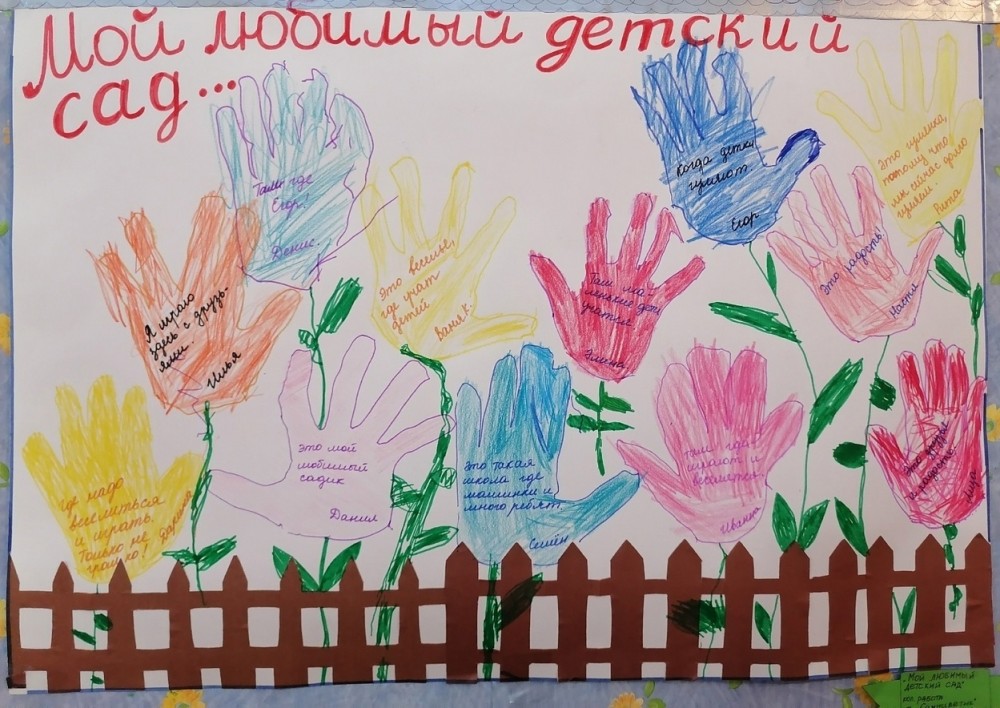 Мой любимый детский
сад...
Там где
Егор!
Денис.
Когда детки
гуляют.
Егор
Это
потому что
мы сейчас долго
гуляем.
Рита
Я играю
здесь с друзь-
ями.
Илья
Это веселье,
где учат
детей
Ваня К.
Там ма-
ленькие дети
учатся
Элина
Это радость!
Настя
Где надо
веселиться
и играть.
Только не
громко!
Дарина
Это мой
любимый
садик
Данил
Это такая
школа где
машинки и
много ребят.
Семён
Там где
играют и
веселятся.
Иванна
Это друзья
и радость.
"Мой любимый
детский сад"
работа